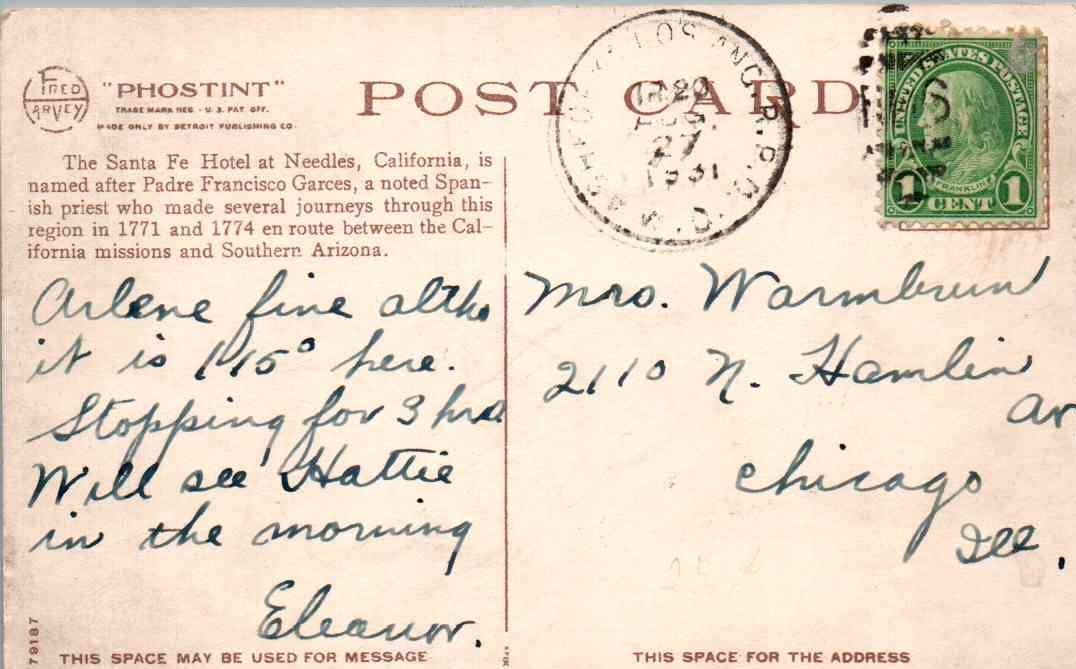 FRED HARVEY
"PHOSTINT"
TRADE MARK REG. U.S. PAT. OFF.
MADE ONLY BY DETROIT PUBLISHING CO.
POST CARD
LOS ANG. R.P.O.
TR 20
AUG
27
1931
W.D.
UNITED STATES POSTAGE
FRANKLIN
1 CENT 1
The Santa Fe Hotel at Needles, California, is
named after Padre Francisco Garces, a noted Span-
ish priest who made several journeys through this
region in 1771 and 1774 en route between the Cal-
ifornia missions and Southern Arizona.
Arlene fine altho
it is 115° here.
Stopping for 3 hrs
Will see Hattie
in the morning
Eleanor.
Mrs. Warmbrun
2110 N. Hamlin
Av
Chicago
Ill.
79187
THIS SPACE MAY BE USED FOR MESSAGE
THIS SPACE FOR THE ADDRESS